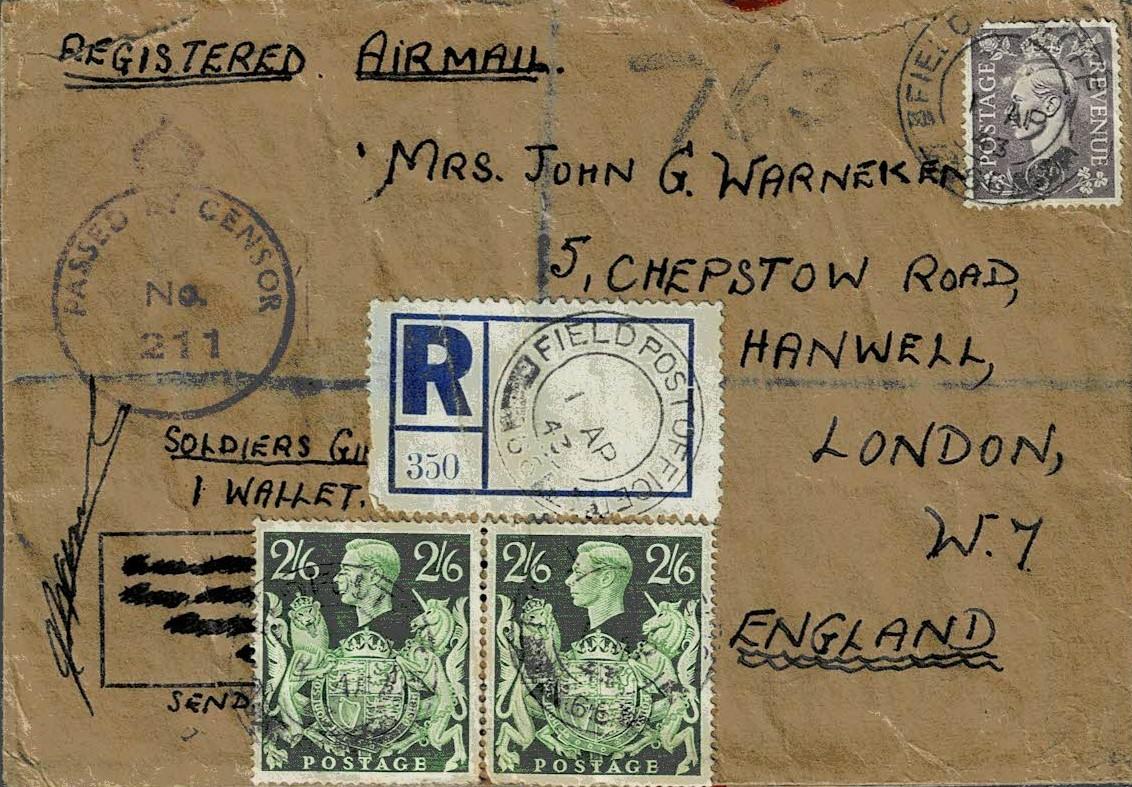 REGISTERED. AIRMAIL.
763
MRS. JOHN G. WARNEKEN
5, CHEPSTOW ROAD,
HANWELL,
LONDON,
W.7
ENGLAND
PASSED BY CENSOR
No.
211
SOLDIERS
1 WALLET.
SEND
R
350
FIELD POST OFFICE
1 AP
43
FIELD
AP
POSTAGE
REVENUE
2/6 2/6
POSTAGE
2/6 2/6
POSTAGE